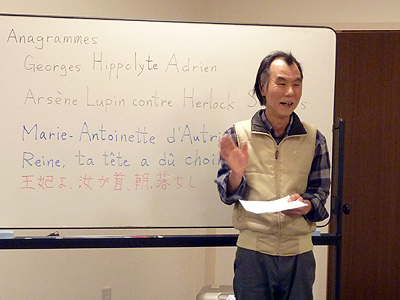 Anagrammes
Georges Hippolyte Adrien
Arsène Lupin contre Herlock
Marie-Antoinette d'Autri
Reine, ta tête a dû choi
王妃よ、汝が首、朝、落ちし